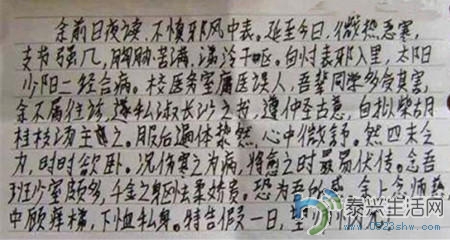 余前日夜读,不慎邪风中表。延至今日,微热恶寒,
支节强几,胸胁苦满,满泠干呕。自忖表邪入里,太阳
少阳二经合病。校医务室庸医误人,吾辈同学多受其害,
余不屑往诊,遂私淑长沙之书,遵仲圣古意,自拟柴胡
桂枝汤主之。服后遍体漐然,心中微舒。然四末乏
力,时时欲卧。况伤寒之为病,将愈之时最易伏传。念吾
班少室颇多,千金之身,
中顾 下恤私身。特告假一日,望
泰兴生活网
www.0523shw.com